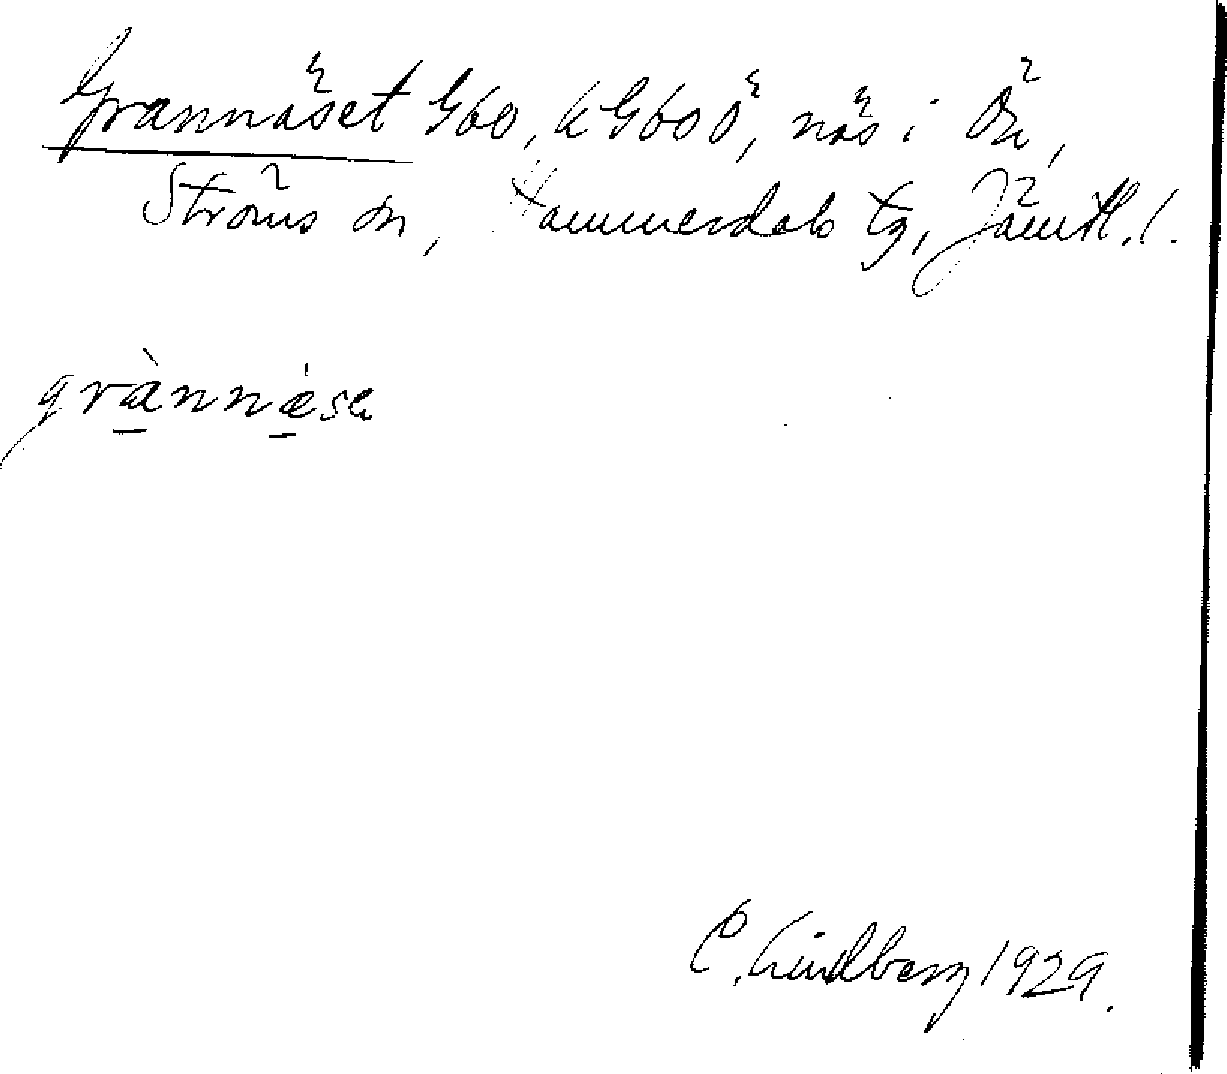 Grannäset G60, kG60ö, näs i Ön,
Ströms sn, Hammerdals tg, Jämtl. l.
grànnése
C. Lindberg 1929.